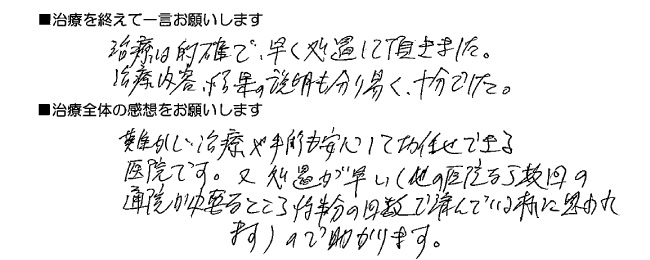 ■治療を終えて一言お願いします
治療は的確で、早く処置して頂きました。
治療内容、結果の説明も分り易く、十分でした。
■治療全体の感想をお願いします
難かしい治療や手術も安心してお任せできる
医院です。又 処置が早い(他の医院なら数回の
通院が必要なところ 約半分の回数で済んでいる様に思われ
ます)ので助かります。